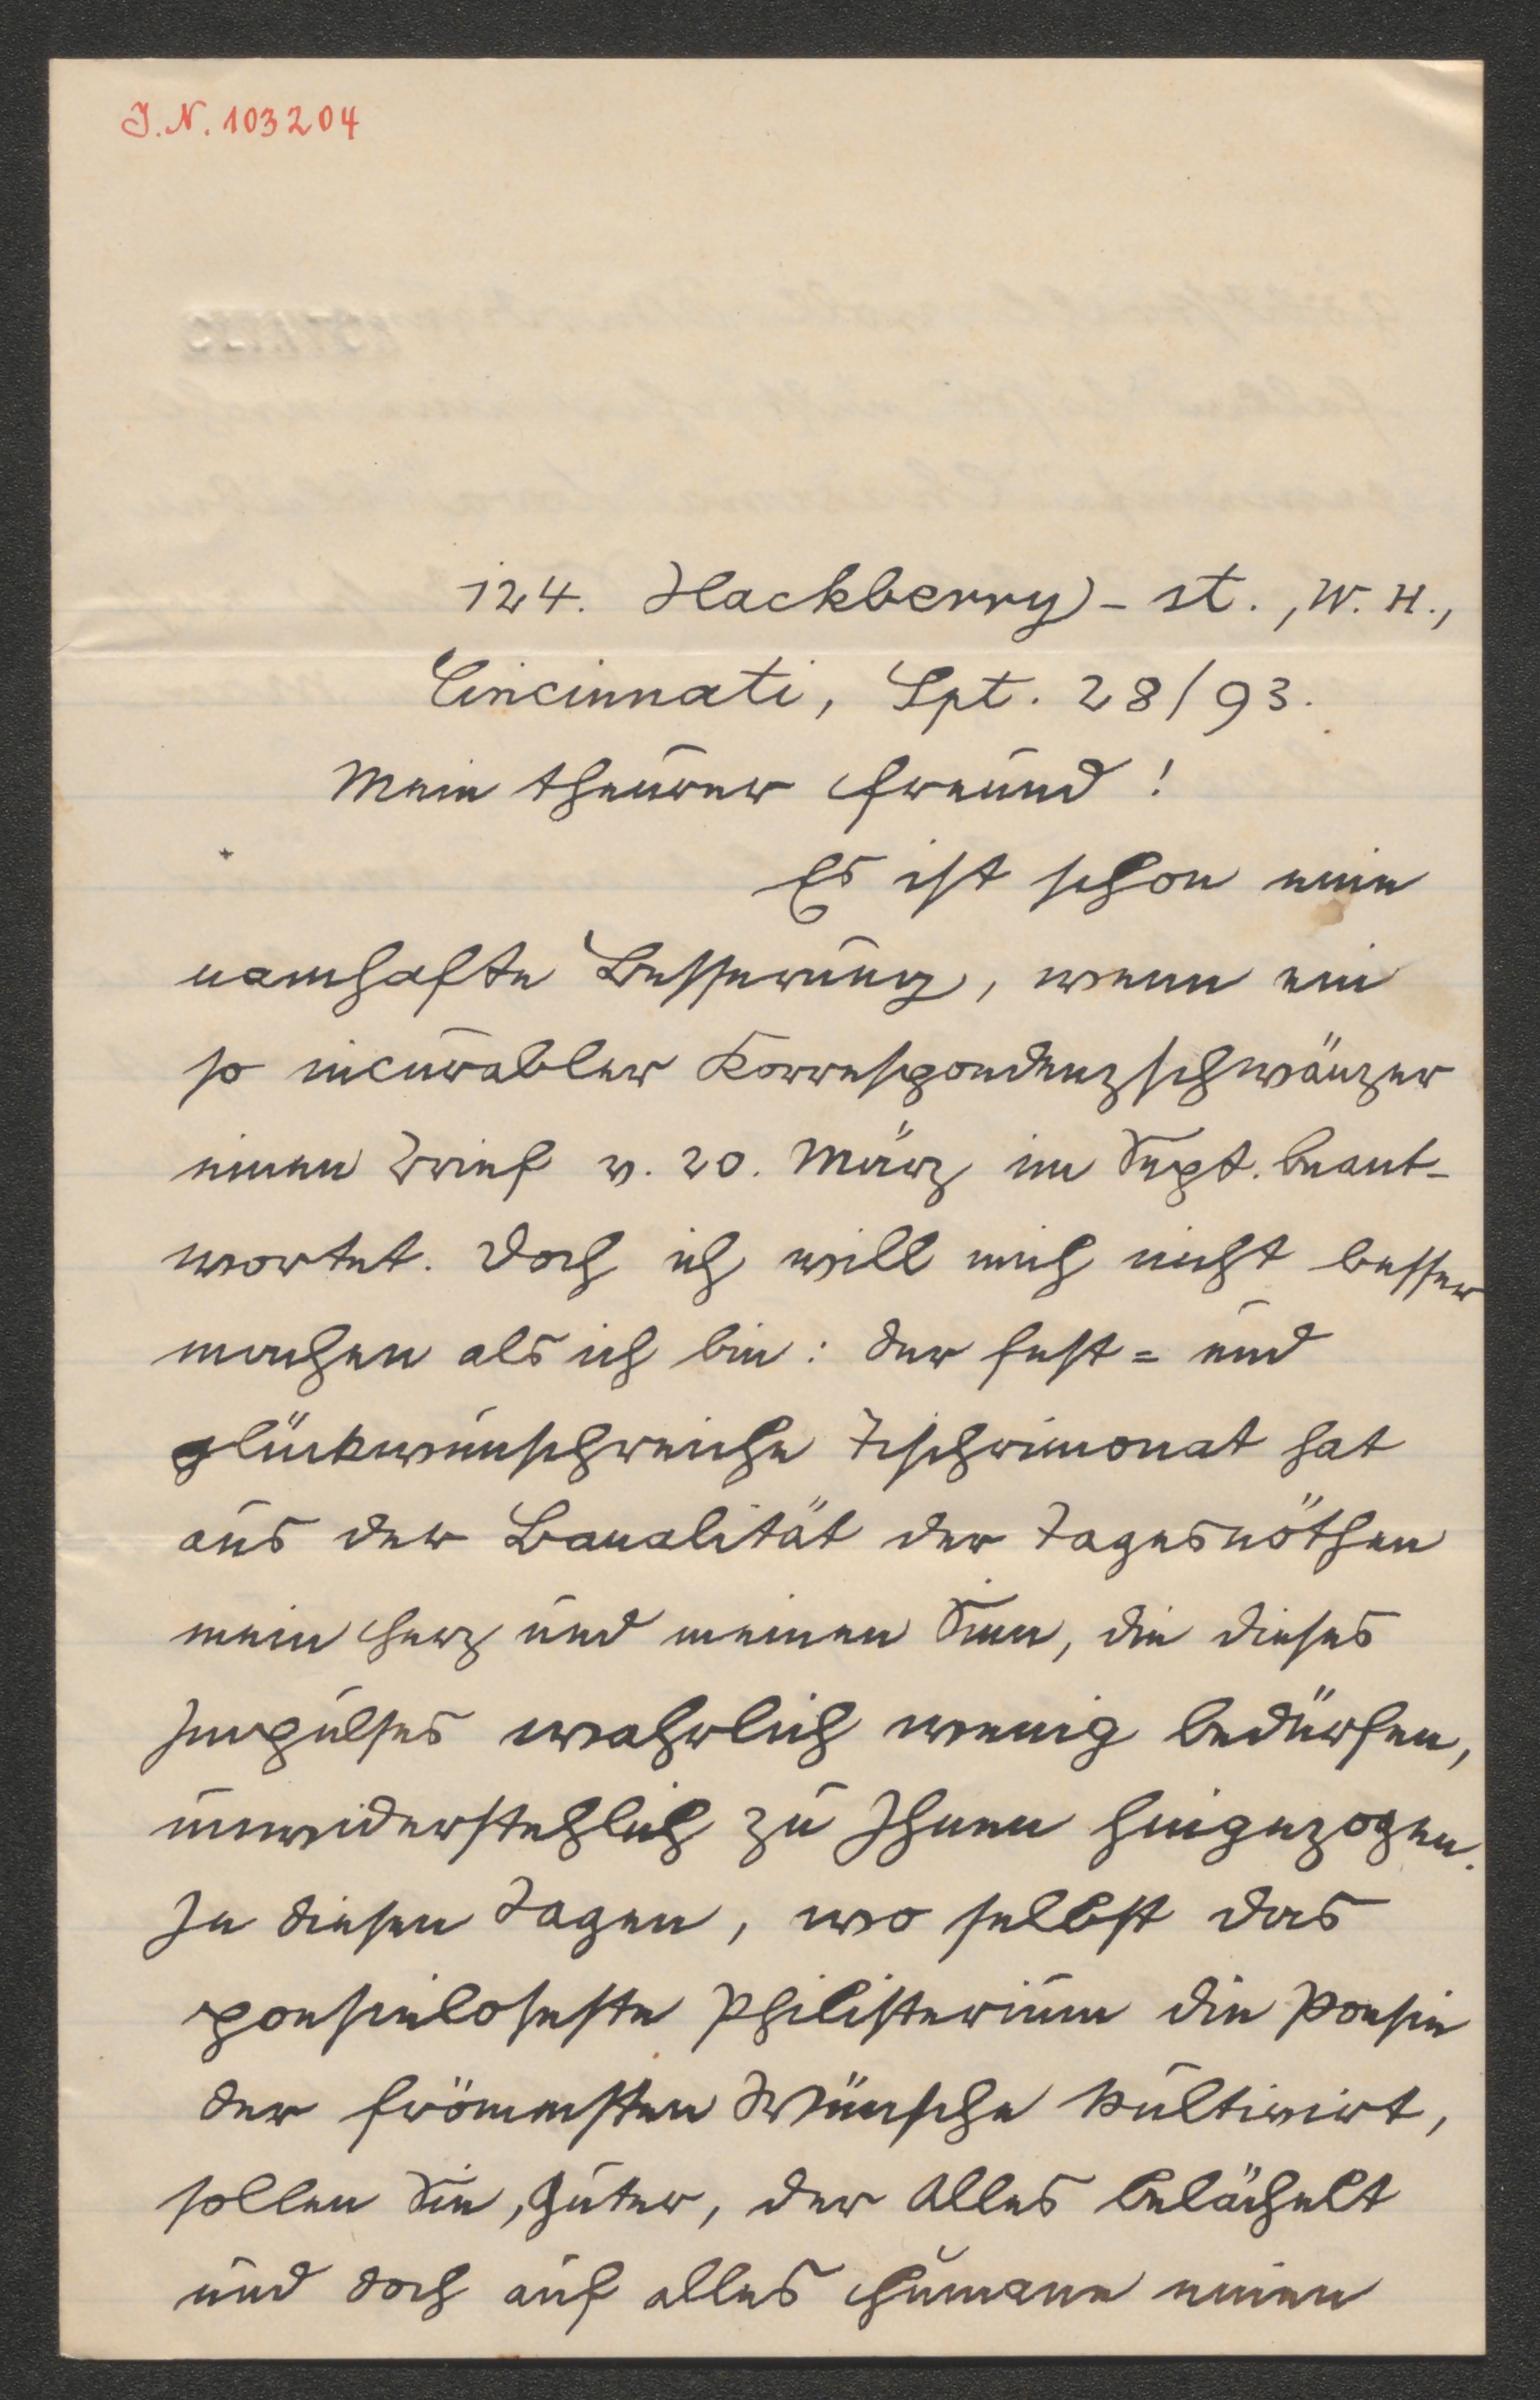 J.N. 103204
124. Hackberry-st., W. H.,
Cincinnati, Spt. 28/93.
Mein theurer Freund!
Es ist schon eine
namhafte Besserung, wenn ein
so incurabler Korrespondenzschwänzer
einen Brief v. 20. März im Sept. beant-
wortet. Doch ich will mich nicht besser
machen als ich bin: der fest= und
glückwunschreiche Tischrimonat hat
aus der Banalität der Tagesnöthen
mein Herz und meinen Sinn, die dieses
Impulses wahrlich wenig bedürfen,
unwiderstehlich zu Ihnen hingezogen.
In diesen Tagen, wo selbst das
poesieloseste Philisterium die Poesie
der frömmsten Wünsche kultivirt,
sollen Sie, Guter, der Alles belächelt
und doch auf alles Humane einen